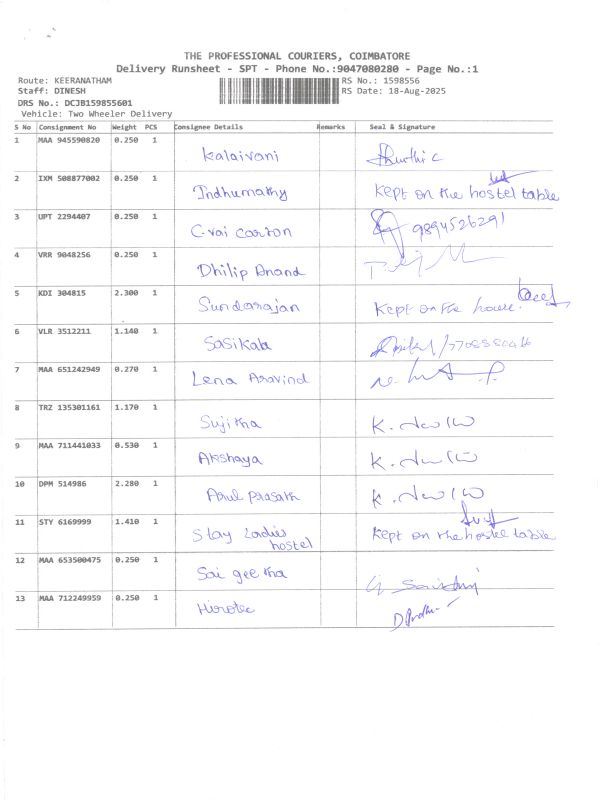 THE PROFESSIONAL COURIERS, COIMBATORE
Delivery Runsheet - SPT - Phone No.:9047080280 - Page No.:1
Route: KEERANATHAM
Staff: DINESH
DRS No.: DCJB159855601
Vehicle: Two Wheeler Delivery
RS No.: 1598556
RS Date: 18-Aug-2025
S No Consignment No Weight PCS Consignee Details Remarks Seal & Signature
1 MAA 945590820 0.250 1 Kalaivani
2 IXM 508877002 0.250 1 Indhumathy Kept on the hostel table
3 UPT 2294407 0.250 1 C-vai carton 9894526291
4 VRR 9048256 0.250 1 Dhilip Anand
5 KDI 304815 2.300 1 Sundarajan Kept on the house.
6 VLR 3512211 1.140 1 Sasikala
7 MAA 651242949 0.270 1 Lena Aravind
8 TRZ 135301161 1.170 1 Sujitha
9 MAA 711441033 0.530 1 Akshaya
10 DPM 514986 2.280 1 Arul prasath
11 STY 6169999 1.410 1 Stay Ladies hostel Kept on the hostel table
12 MAA 653500475 0.250 1 Sai geetha
13 MAA 712249959 0.250 1 Hirotec